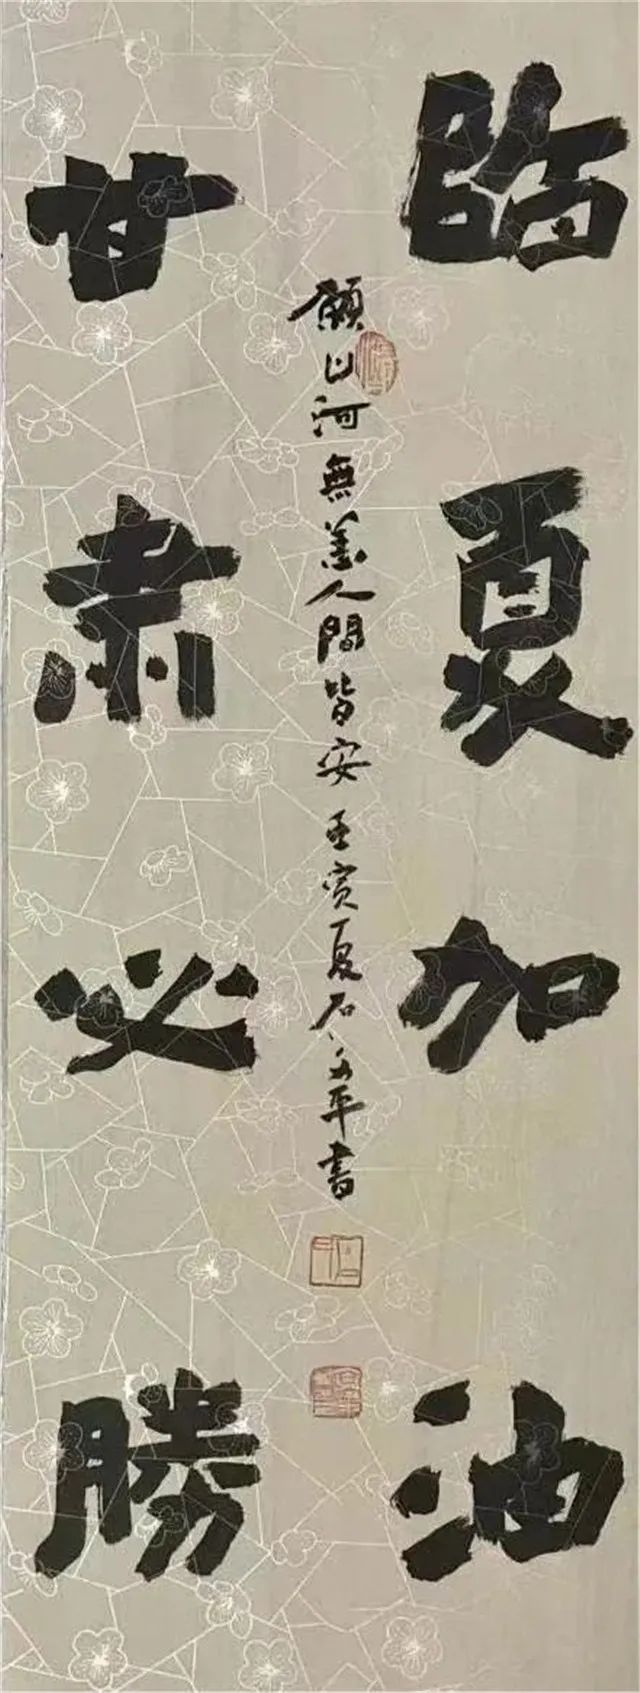 临夏加油
甘肃必勝
願山河無恙人間皆安 壬寅夏石平書